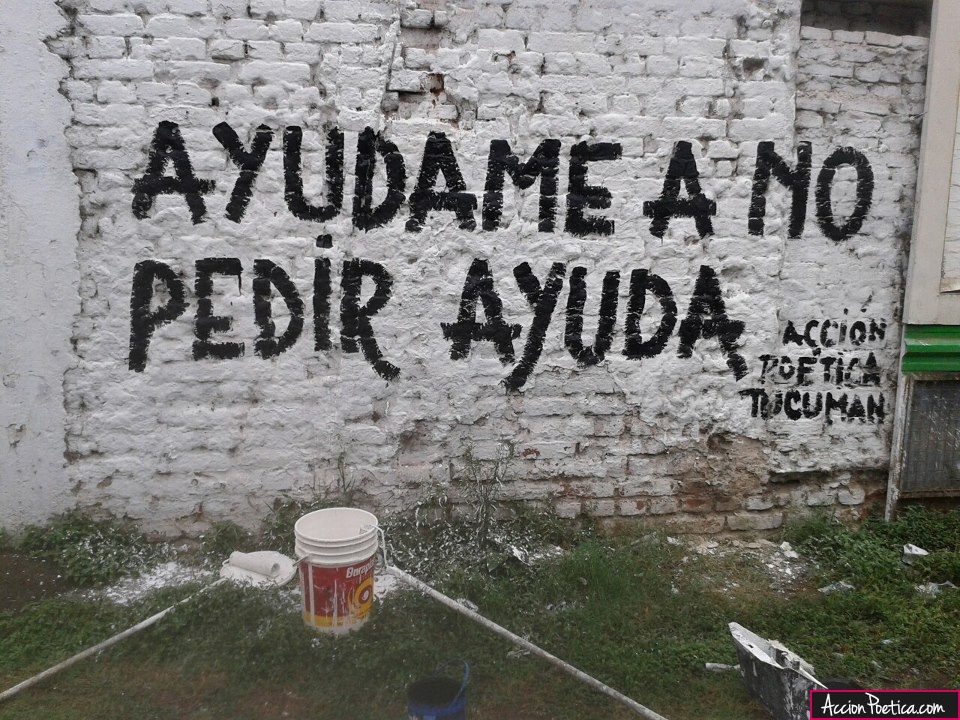 AYUDAME A NO
PEDIR AYUDA
ACCIÓN
POETICA
TUCUMAN
AccionPoetica.com